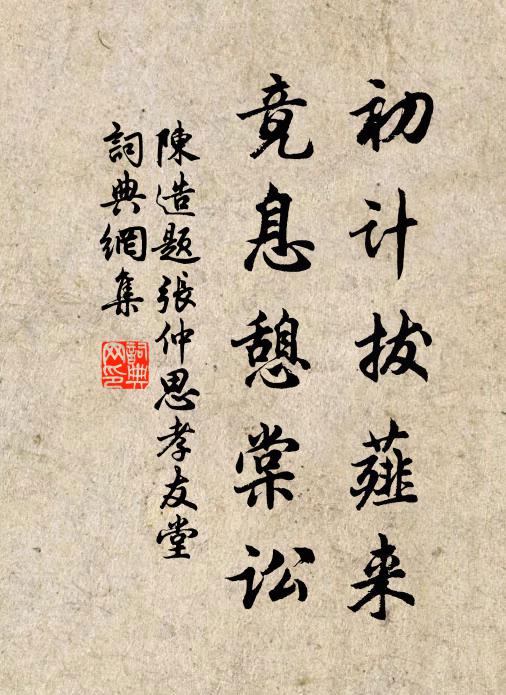 初计拔薤来
竟息憩棠讼
陳造题張仲思孝友堂
詞典網集
詞典网印